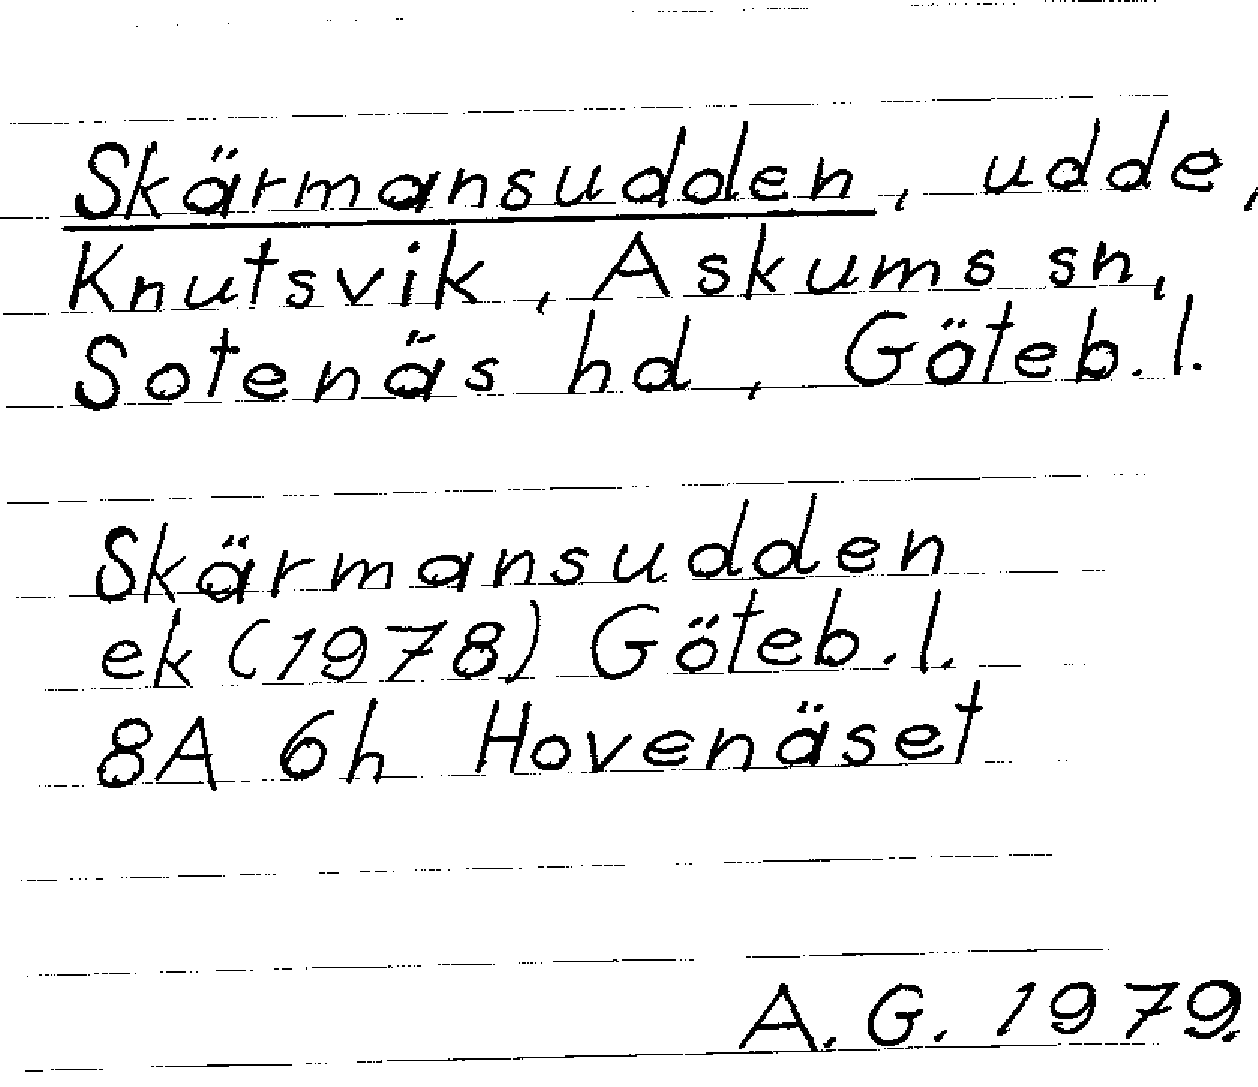 Skärmansudden, udde,
Knutsvik, Askums sn,
Sotenäs hd, Göteb.l.
Skärmansudden
ek (1978) Göteb.l.
8A 6h Hovenäset
A.G. 1979.